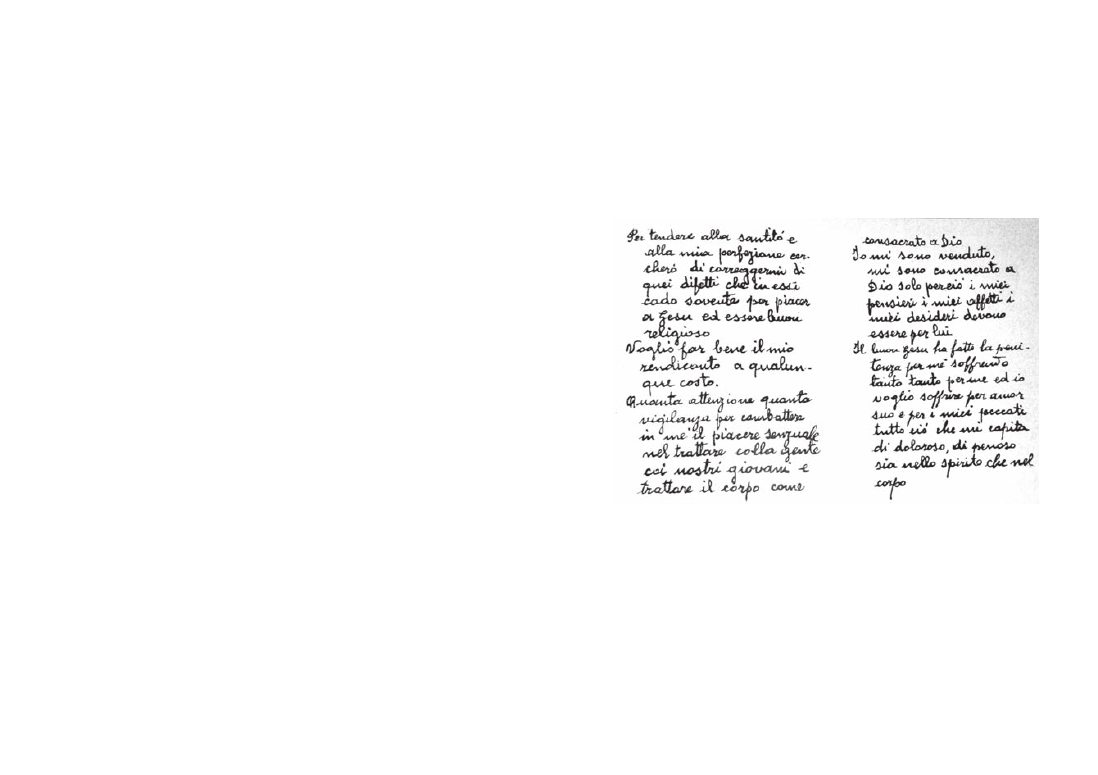 Per tendere alla santitá e
alla mia perfezione cer-
cheró di correggermi di
quei difetti che in essi
cado sovente per piacer
a Gesu ed essere buon
religioso
Voglio far bene il mio
rendiconto a qualun-
que costo.
Quanta attenzione quanta
vigilanza per combattere
in me il piacere sensuale
nel trattare colla gente
coi nostri giovani e
trattare il corpo come
consacrato a Dio
Io mi sono venduto,
mi sono consacrato a
Dio solo perció i miei
pensieri i miei affetti i
miei desideri devono
essere per lui
Il buon Gesu ha fatto la peni-
tenza per me soffrendo
tanto tanto per me ed io
voglio soffrire per amor
suo e per i miei peccati
tutto ció che mi capita
di doloroso, di penoso
sia nello spirito che nel
corpo